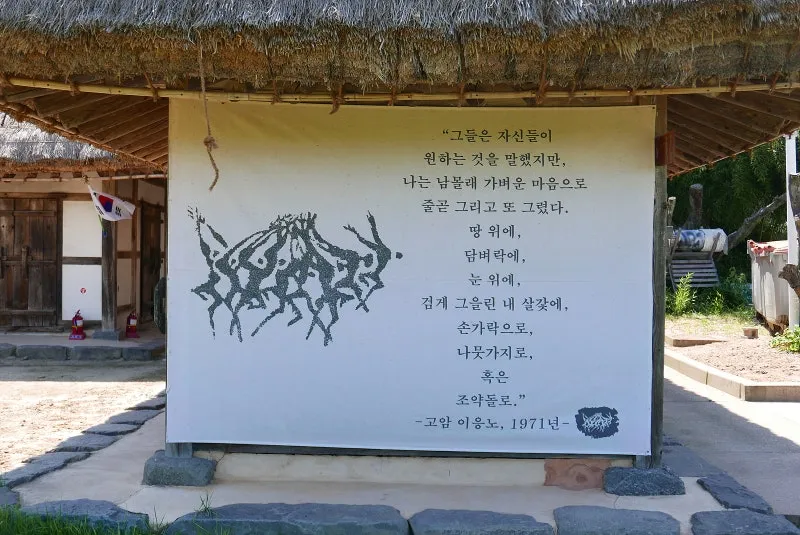 “그들은 자신들이
원하는 것을 말했지만,
나는 남몰래 가벼운 마음으로
줄곧 그리고 또 그렸다.
땅 위에,
담벼락에,
눈 위에,
검게 그을린 내 살갗에,
손가락으로,
나뭇가지로,
혹은
조약돌로.”
-고암 이응노, 1971년-